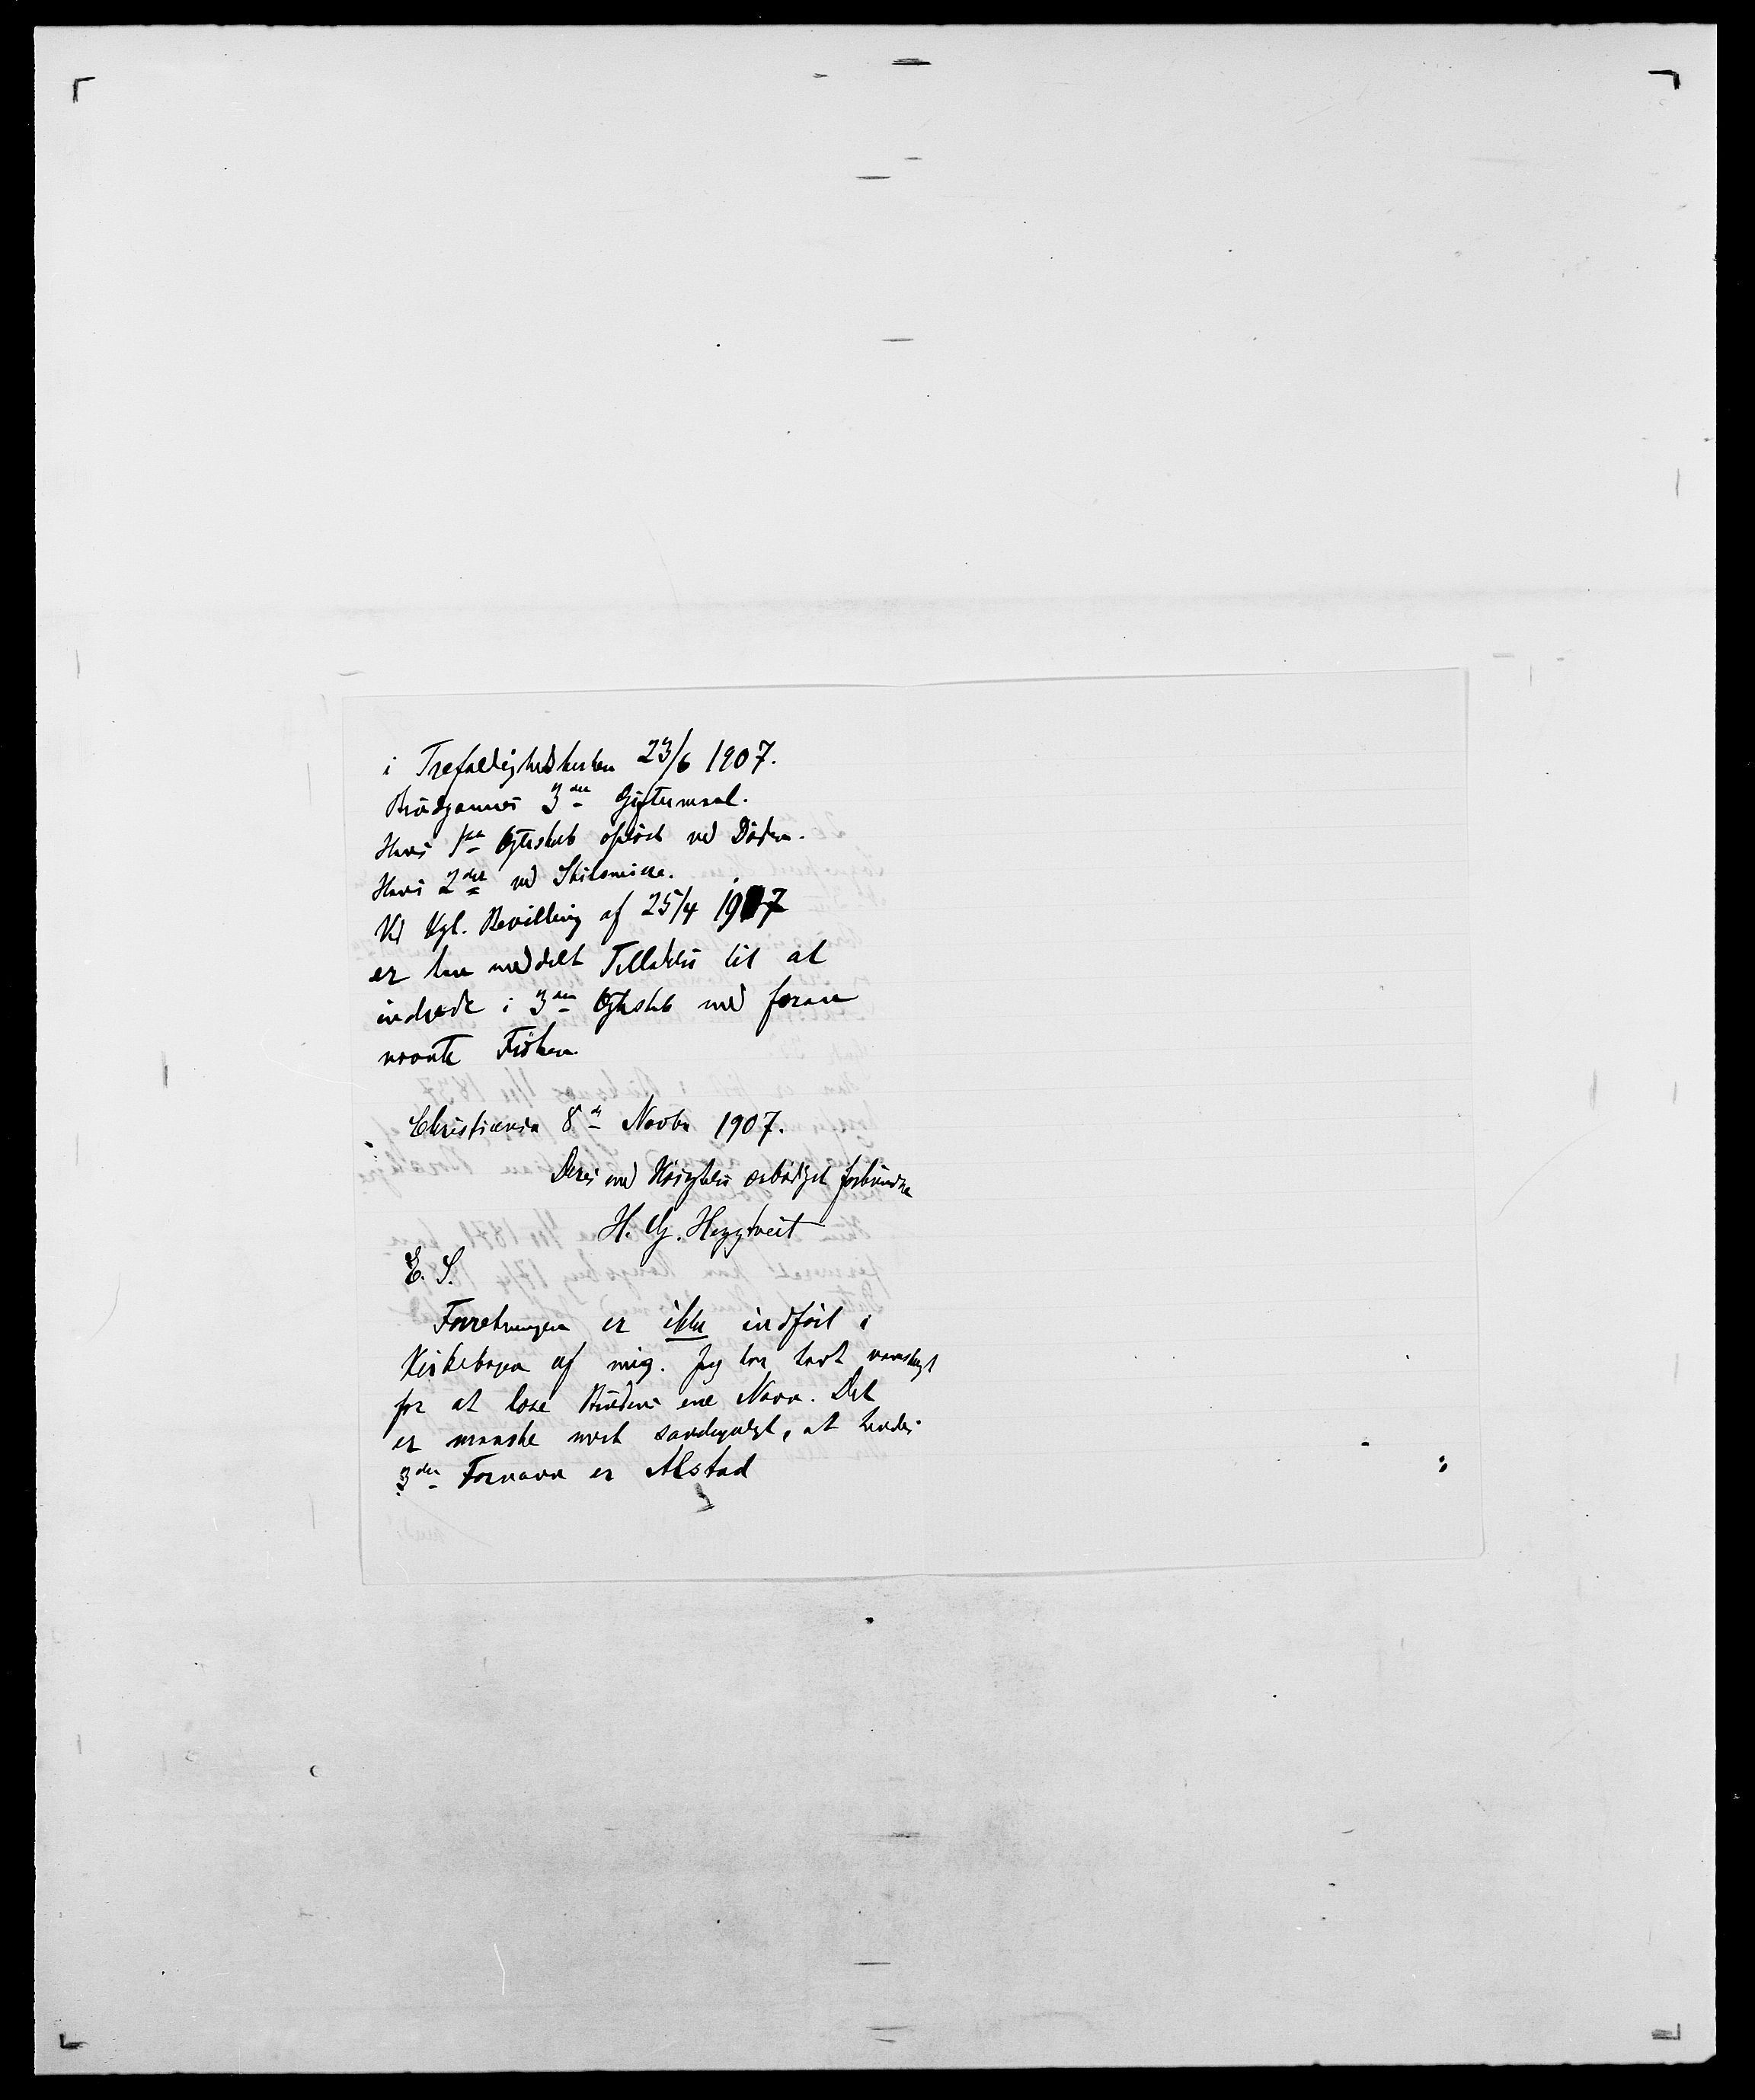 i Trefoldighedskirken 23/6 1907.
Brudgommens 3die Giftermaal.
Hans 1ste Egteskab opløst ved Døden.
Hans 2det ved Skilsmisse.
Ved Kgl. Bevilling af 25/4 1907
er ham meddelt Tilladelse til at
indtræde i 3die Egteskab med foran
nævnte Frøken.
Christiania 8de Novbr 1907.
Deres med Høiagtelse ærbødigst forbundne
H. G. Heggtveit
E. S.
Forretningen er ikke indført i
Kirkebogen af mig. Jeg har havt vanskeligt
for at læse Brudens ene Navn. Det
er maaske mest sandsynligt, at hendes
3die Fornavn er Alstad